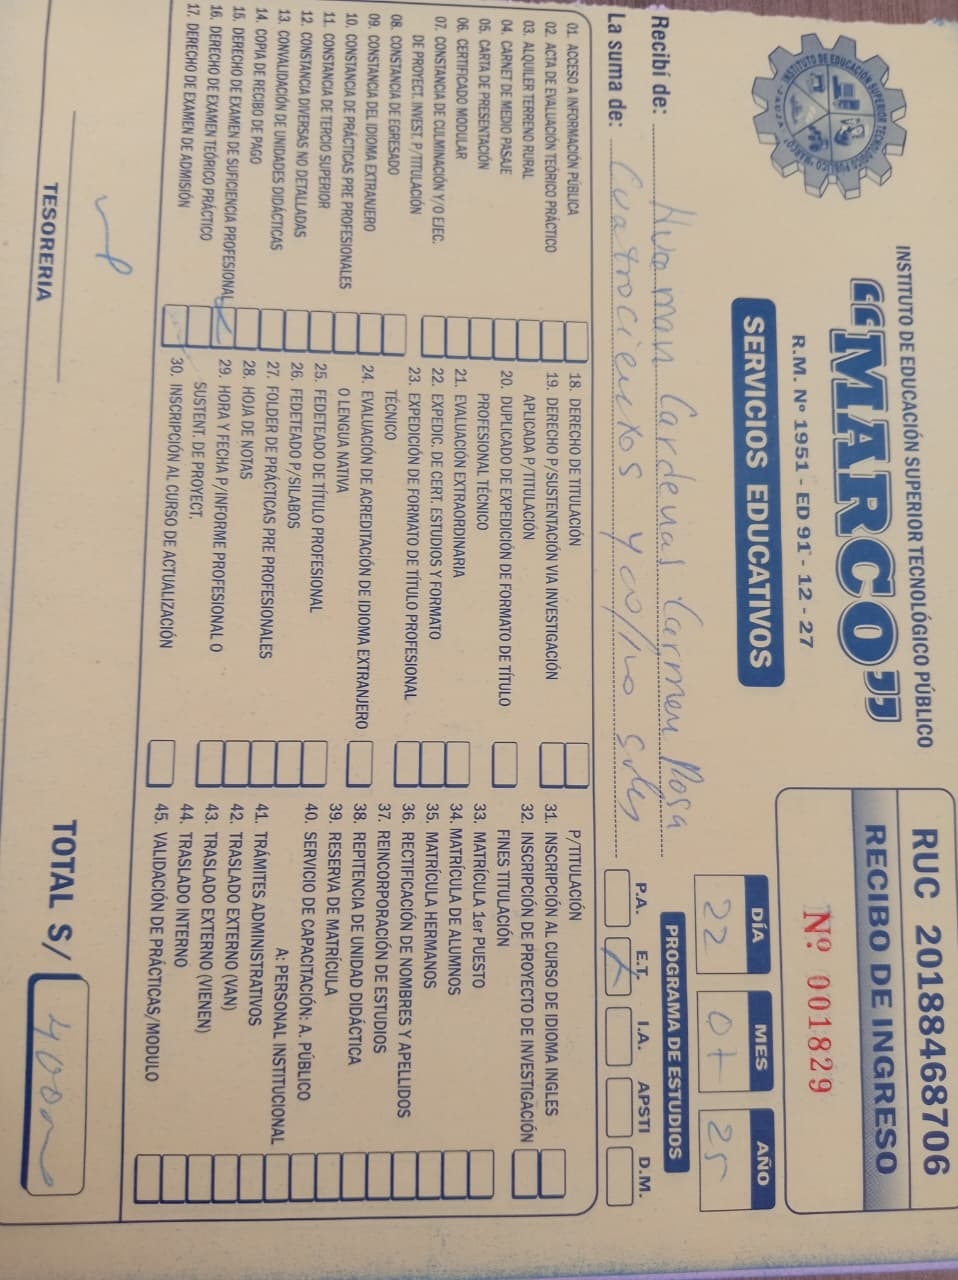 INSTITUTO DE EDUCACIÓN SUPERIOR TECNOLÓGICO PÚBLICO
"MARCO"
R.M. Nº 1951 - ED 91 - 12 - 27
SERVICIOS EDUCATIVOS
RUC 20188468706
RECIBO DE INGRESO
Nº 001829
DÍA MES AÑO
22 07 25
PROGRAMA DE ESTUDIOS
P.A. E.T. I.A. APSTI D.M.
X
Recibí de: Huaman Cardenas Carmen Rosa
La suma de: Cuatrocientos y 00/100 soles
01. ACCESO A INFORMACIÓN PÚBLICA
02. ACTA DE EVALUACIÓN TEÓRICO PRÁCTICO
03. ALQUILER TERRENO RURAL
04. CARNET DE MEDIO PASAJE
05. CARTA DE PRESENTACIÓN
06. CERTIFICADO MODULAR
07. CONSTANCIA DE CULMINACIÓN Y/O EJEC.
DE PROYECT. INVEST. P/TITULACIÓN
08. CONSTANCIA DE EGRESADO
09. CONSTANCIA DEL IDIOMA EXTRANJERO
10. CONSTANCIA DE PRÁCTICAS PRE PROFESIONALES
11. CONSTANCIA DE TERCIO SUPERIOR
12. CONSTANCIA DIVERSAS NO DETALLADAS
13. CONVALIDACIÓN DE UNIDADES DIDÁCTICAS
14. COPIA DE RECIBO DE PAGO
15. DERECHO DE EXAMEN DE SUFICIENCIA PROFESIONAL
16. DERECHO DE EXAMEN TEÓRICO PRÁCTICO
17. DERECHO DE EXAMEN DE ADMISIÓN
18. DERECHO DE TITULACIÓN
19. DERECHO P/SUSTENTACIÓN VIA INVESTIGACIÓN
APLICADA P/TITULACIÓN
20. DUPLICADO DE EXPEDICIÓN DE FORMATO DE TÍTULO
PROFESIONAL TÉCNICO
21. EVALUACIÓN EXTRAORDINARIA
22. EXPEDIC. DE CERT. ESTUDIOS Y FORMATO
23. EXPEDICIÓN DE FORMATO DE TÍTULO PROFESIONAL
TÉCNICO
24. EVALUACIÓN DE ACREDITACIÓN DE IDIOMA EXTRANJERO
O LENGUA NATIVA
25. FEDETEADO DE TÍTULO PROFESIONAL
26. FEDETEADO P/SILABOS
27. FOLDER DE PRÁCTICAS PRE PROFESIONALES
28. HOJA DE NOTAS
29. HORA Y FECHA P/INFORME PROFESIONAL O
SUSTENT. DE PROYECT.
30. INSCRIPCIÓN AL CURSO DE ACTUALIZACIÓN
P/TITULACIÓN
31. INSCRIPCIÓN AL CURSO DE IDIOMA INGLES
32. INSCRIPCIÓN DE PROYECTO DE INVESTIGACIÓN
FINES TITULACIÓN
33. MATRÍCULA 1er PUESTO
34. MATRÍCULA DE ALUMNOS
35. MATRÍCULA HERMANOS
36. RECTIFICACIÓN DE NOMBRES Y APELLIDOS
37. REINCORPORACIÓN DE ESTUDIOS
38. REPITENCIA DE UNIDAD DIDÁCTICA
39. RESERVA DE MATRÍCULA
40. SERVICIO DE CAPACITACIÓN: A. PÚBLICO
A: PERSONAL INSTITUCIONAL
41. TRÁMITES ADMINISTRATIVOS
42. TRASLADO EXTERNO (VAN)
43. TRASLADO EXTERNO (VIENEN)
44. TRASLADO INTERNO
45. VALIDACIÓN DE PRÁCTICAS/MODULO
TESORERIA
TOTAL S/ 400.00